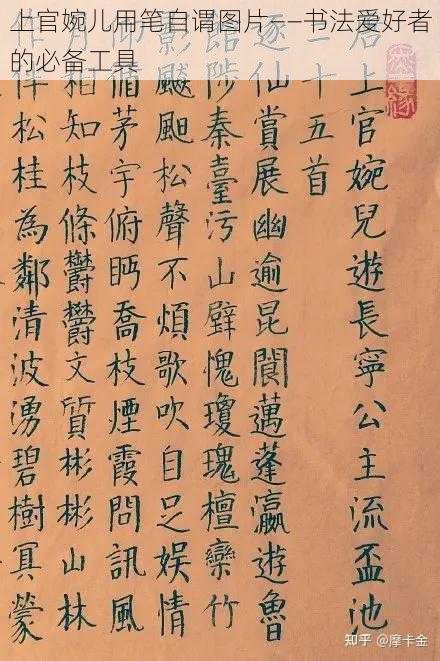 上官婉儿用笔自谓图片——书法爱好者
的必备工具
上官婉兒遊長寧公主流盃池
二十五首
逐仙賞展幽逾昆閬邁蓬瀛遊魯
館陟秦臺污山壁愧瓊瑰檀欒竹
影飈颺松聲不煩歌吹自足娱情
循茅宇俯眄喬枝煙霞問訊風
月相知枝條欝欝文質彬彬山林
作伴松桂為鄰清波湧碧樹冥蒙
知乎 @摩卡金